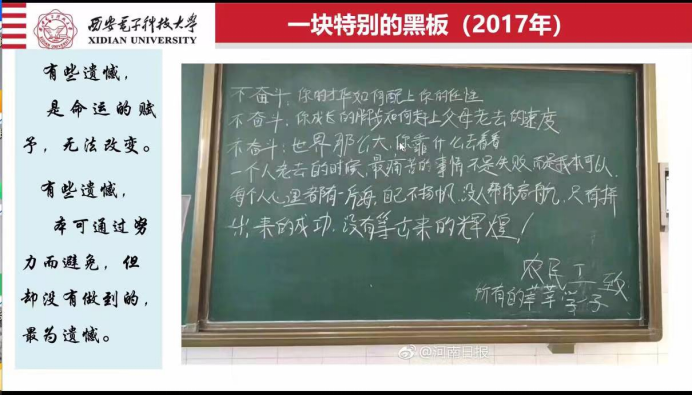 西安电子科技大学
XIDIAN UNIVERSITY
一块特别的黑板（2017年）
有些遗憾，
是命运的赋
予，无法改变。
有些遗憾，
本可通过努
力而避免，但
却没有做到的，
最为遗憾。
不奋斗，你的才华如何配上你的任性
不奋斗，你成长的脚步如何赶上父母老去的速度
不奋斗，世界那么大，你靠什么去看看
一个人老去的时候，最痛苦的事情不是失败，而是我本可以，
每个人心里都有一片海，自己不扬帆，没人帮你启航，只有拼
出来的成功，没有等出来的辉煌！
农民工致
所有的莘莘学子
@河南日报